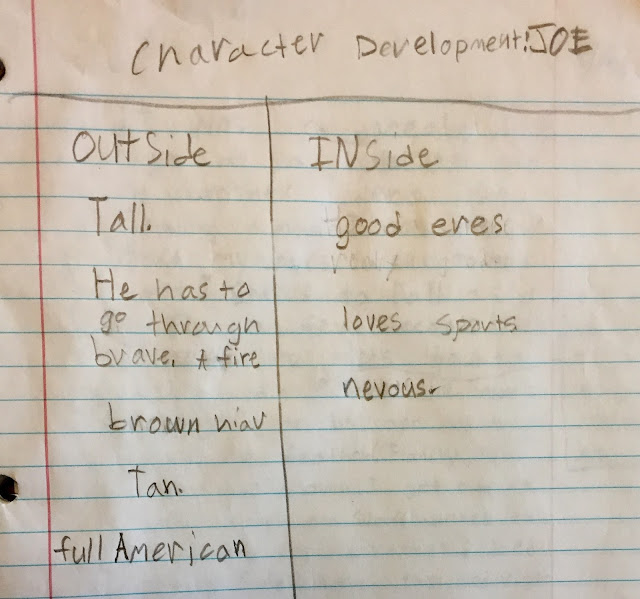 Character Development:JOE
OutSide
Tall.
He has to
go through
brave, A fire
brown hiar
Tan.
full American
INSide
good eres
loves sports
nevous.